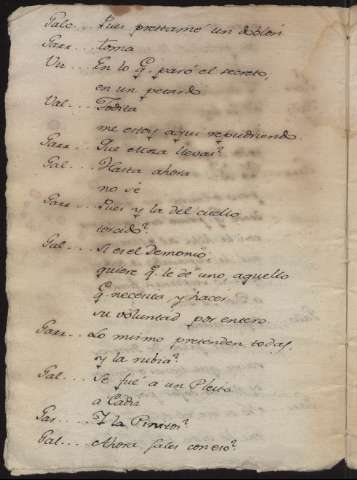 Galo... Pues prestame un doblon
Garr... toma
Un... En lo q. paró el secreto,
en un petardo
Val... Todita
me estoy aqui repudriendo
Garr... Que Moza llevas?
Gal... Hasta ahora
no sé
Garr... Pues y la del cuello
torcido?
Gal... Si es el Demonio
quiere q. le de uno, aquello
q. necesita y hacer
su voluntad por entero.
Garr... Lo mismo pretenden todas,
y la rubia?
Gal... Se fué a un Pleito
a Cadiz
Gar... Y la
Gal... Ahora sales con eso?